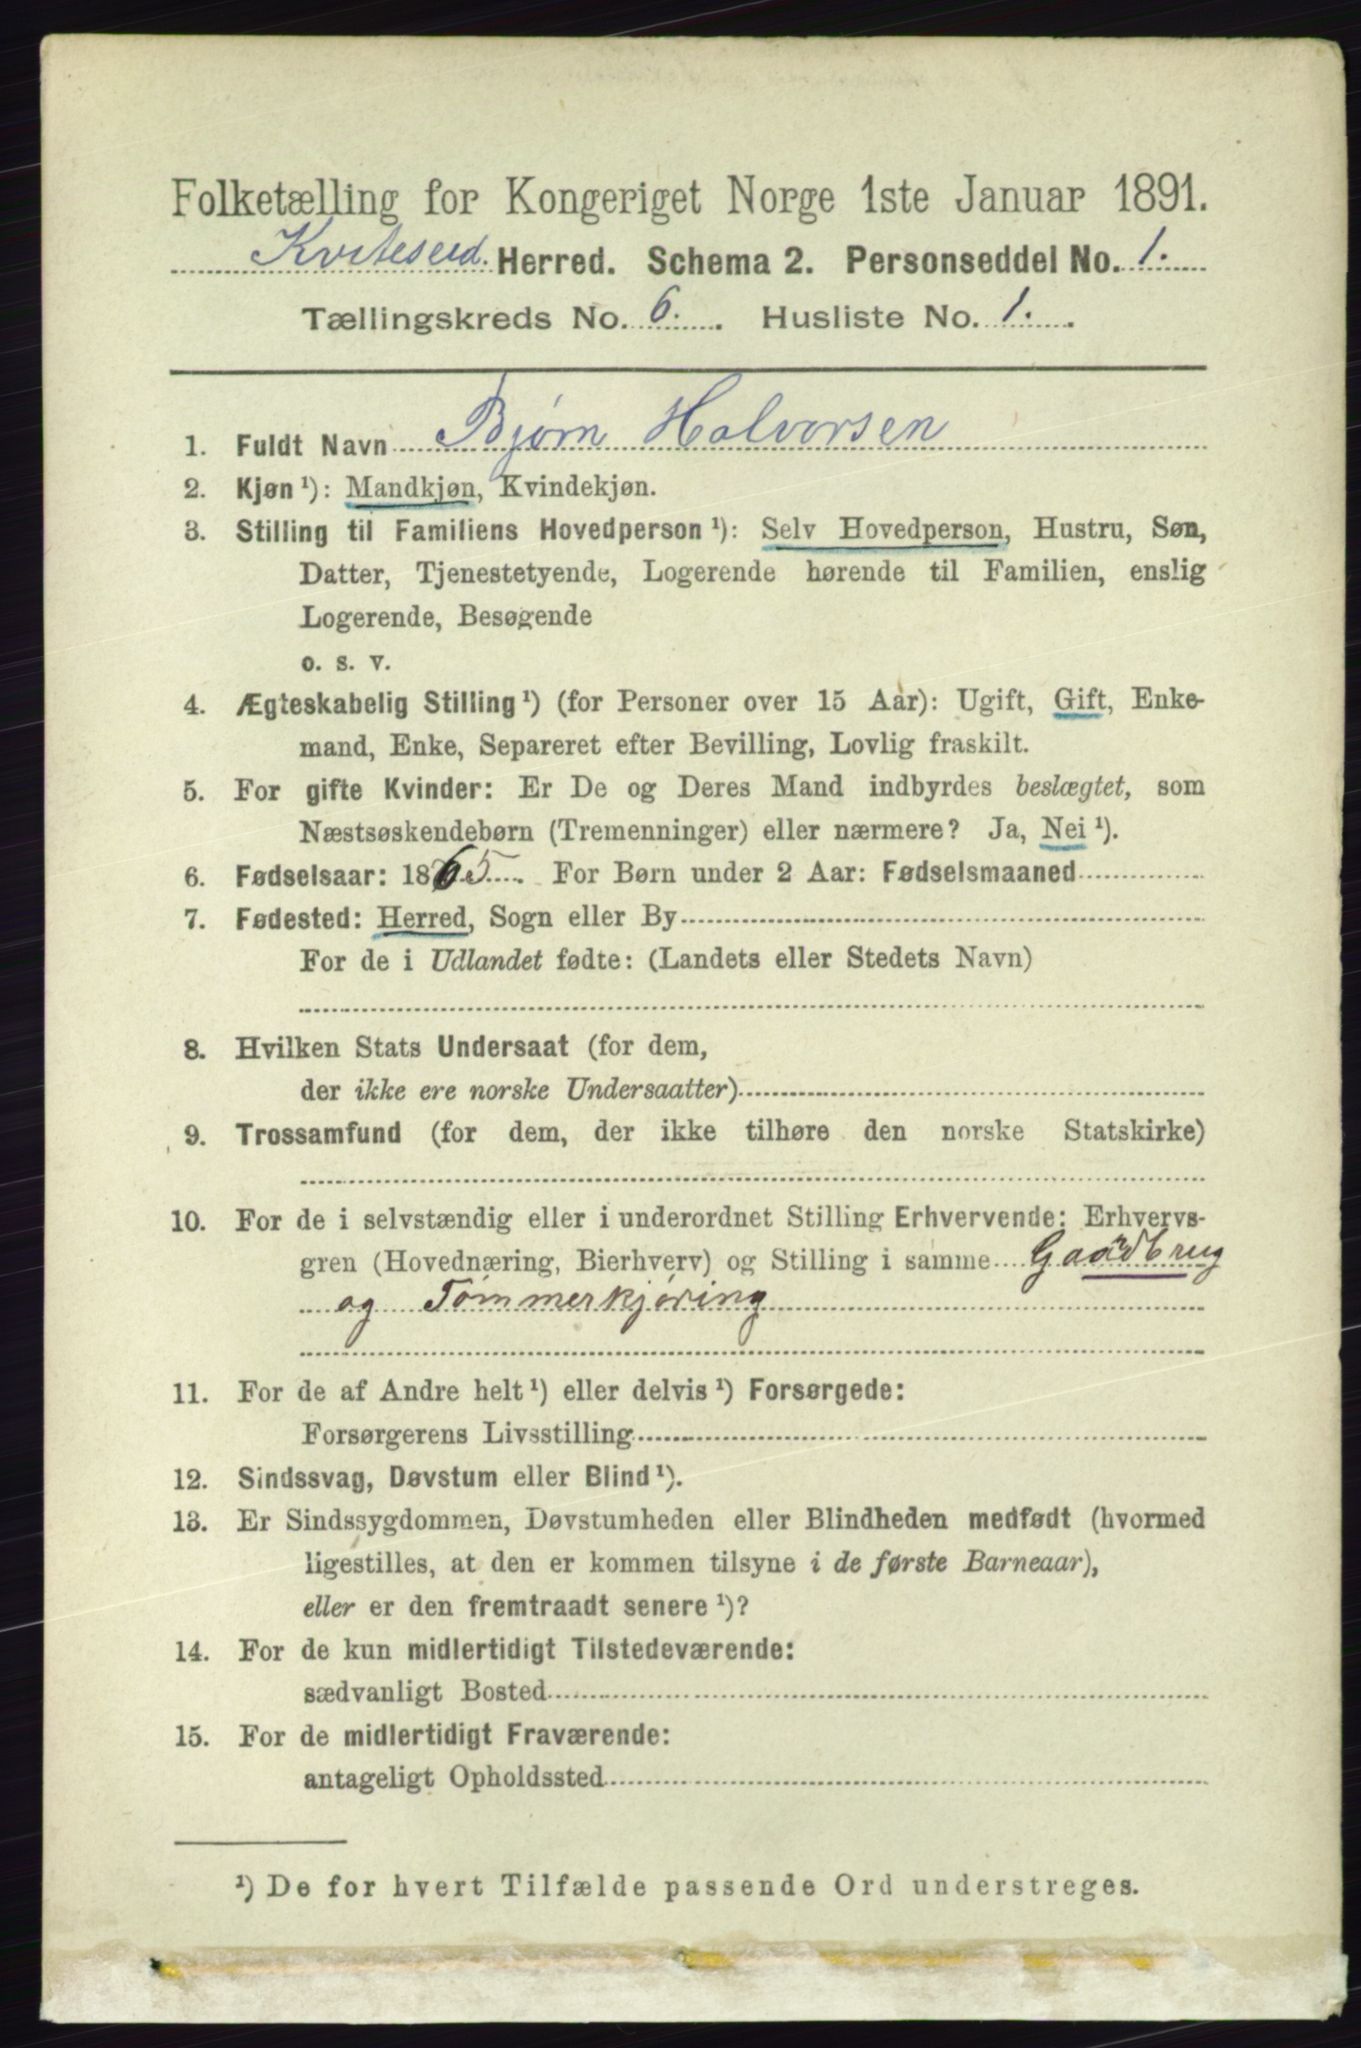 Folketælling for Kongeriget Norge 1ste Januar 1891.
Kviteseid Herred. Schema 2. Personseddel No. 1.
Tællingskreds No. 6. Husliste No. 1.
1. Fuldt Navn Bjørn Halvorsen
2. Kjøn ¹): Mandkjøn, Kvindekjøn.
3. Stilling til Familiens Hovedperson ¹): Selv Hovedperson, Hustru, Søn,
Datter, Tjenestetyende, Logerende hørende til Familien, enslig
Logerende, Besøgende
o. s. v.
4. Ægteskabelig Stilling ¹) (for Personer over 15 Aar): Ugift, Gift, Enke-
mand, Enke, Separeret efter Bevilling, Lovlig fraskilt.
5. For gifte Kvinder: Er De og Deres Mand indbyrdes beslægtet, som
Næstsøskendebørn (Tremenninger) eller nærmere? Ja, Nei ¹).
6. Fødselsaar: 1865. For Børn under 2 Aar: Fødselsmaaned
7. Fødested: Herred, Sogn eller By
For de i Udlandet fødte: (Landets eller Stedets Navn)
8. Hvilken Stats Undersaat (for dem,
der ikke ere norske Undersaatter)
9. Trossamfund (for dem, der ikke tilhøre den norske Statskirke)
10. For de i selvstændig eller i underordnet Stilling Erhvervende: Erhvervs-
gren (Hovednæring, Bierhverv) og Stilling i samme Gaardbrug
og Tømmerkjøring
11. For de af Andre helt ¹) eller delvis ¹) Forsørgede:
Forsørgerens Livsstilling
12. Sindssvag, Døvstum eller Blind ¹).
13. Er Sindssygdommen, Døvstumheden eller Blindheden medfødt (hvormed
ligestilles, at den er kommen tilsyne i de første Barneaar),
eller er den fremtraadt senere ¹)?
14. For de kun midlertidigt Tilstedeværende:
sædvanligt Bosted
15. For de midlertidigt Fraværende:
antageligt Opholdssted
¹) De for hvert Tilfælde passende Ord understreges.